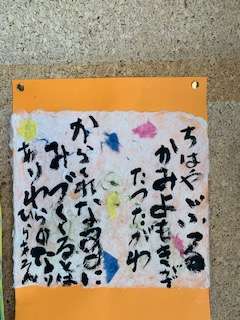 ちはやぶる
かみよもきかず
たつたがわ
からくれなゐに
みづくくるとは
ありわらのなり